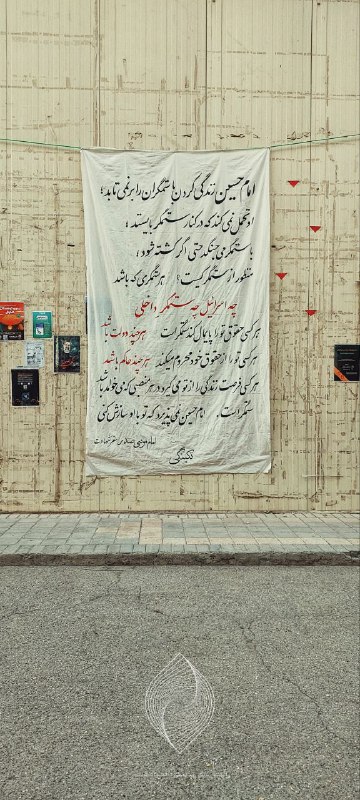 امام حسین زندگی کردن با ستمگران را برنمی‌تابد؛
او تحمل نمی‌کند که در کنار ستمگر بایستد؛
با ستمگر می‌جنگد حتی اگر کشته شود؛
منظور از ستمگر کیست؟ هر ستمگری که باشد
چه اسرائیل چه ستمگر داخلی
هر کسی حقوق تو را پایمال کند ستمگر است هر چند دولت باشد
هر کسی تو را از حقوق خود محروم میکند هر چند حاکم باشد
هر کسی فرصت زندگی را از تو می‌گیرد در هر منصبی که می‌خواهد باشد
ستمگر است. امام حسین نمی‌پذیرد که تو با او سازش کنی
امام موسی صدر